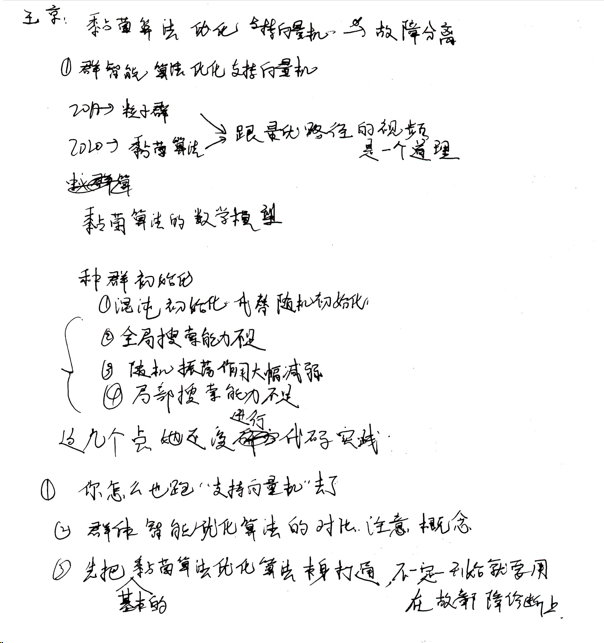 王京: 黏菌算法 优化 支持向量机 → 故障分离
① 群智能算法优化支持向量机
→ 粒子群
2020→ 黏菌算法 → 跟最优路径的视频
是一个道理
黏菌算法的数学模型
种群初始化
①混沌初始化 代替随机初始化
② 全局搜索能力不足
③ 随机振荡作用大幅减弱
④ 局部搜索能力不足
这几个点她还没进行代码实践.
① 你怎么也跑“支持向量机”去了
② 群体智能优化算法的对比. 注意概念
③ 先把黏菌算法优化算法本身打通, 不一定开始就要用
基本的
在故障诊断上.